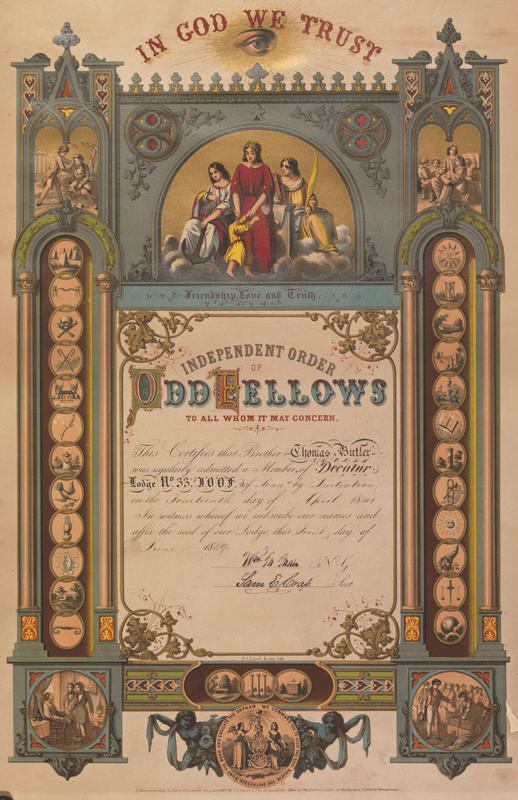 IN GOD WE TRUST
Friendship, Love and Truth.
INDEPENDENT ORDER
OF
ODD FELLOWS
TO ALL WHOM IT MAY CONCERN.
This Certifies that Brother Thomas Butler
was regularly admitted a Member, of Decatur
Lodge No. 33. I.O.O.F. of by Initiation
on the Fourteenth day of April
In witness whereof we subscribe our names and
affix the seal of our Lodge, this First day of
June 1869.
Wm Main N.G.
Sam E. Crap. Sect